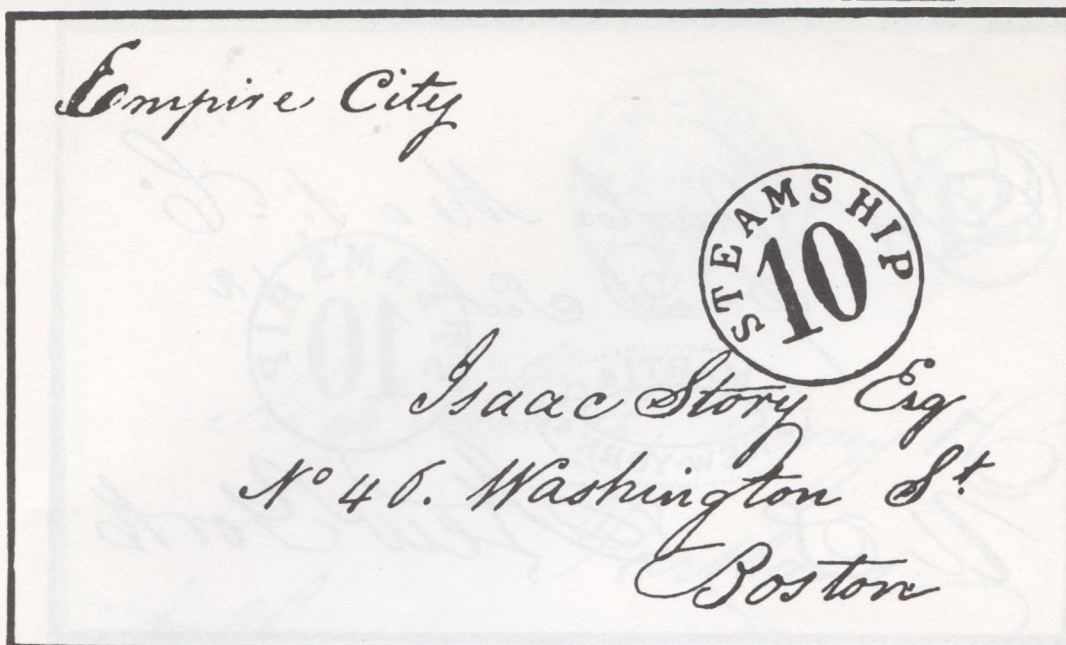 Empire City
STEAMSHIP
10
Isaac Story Esq
No 46. Washington St.
Boston